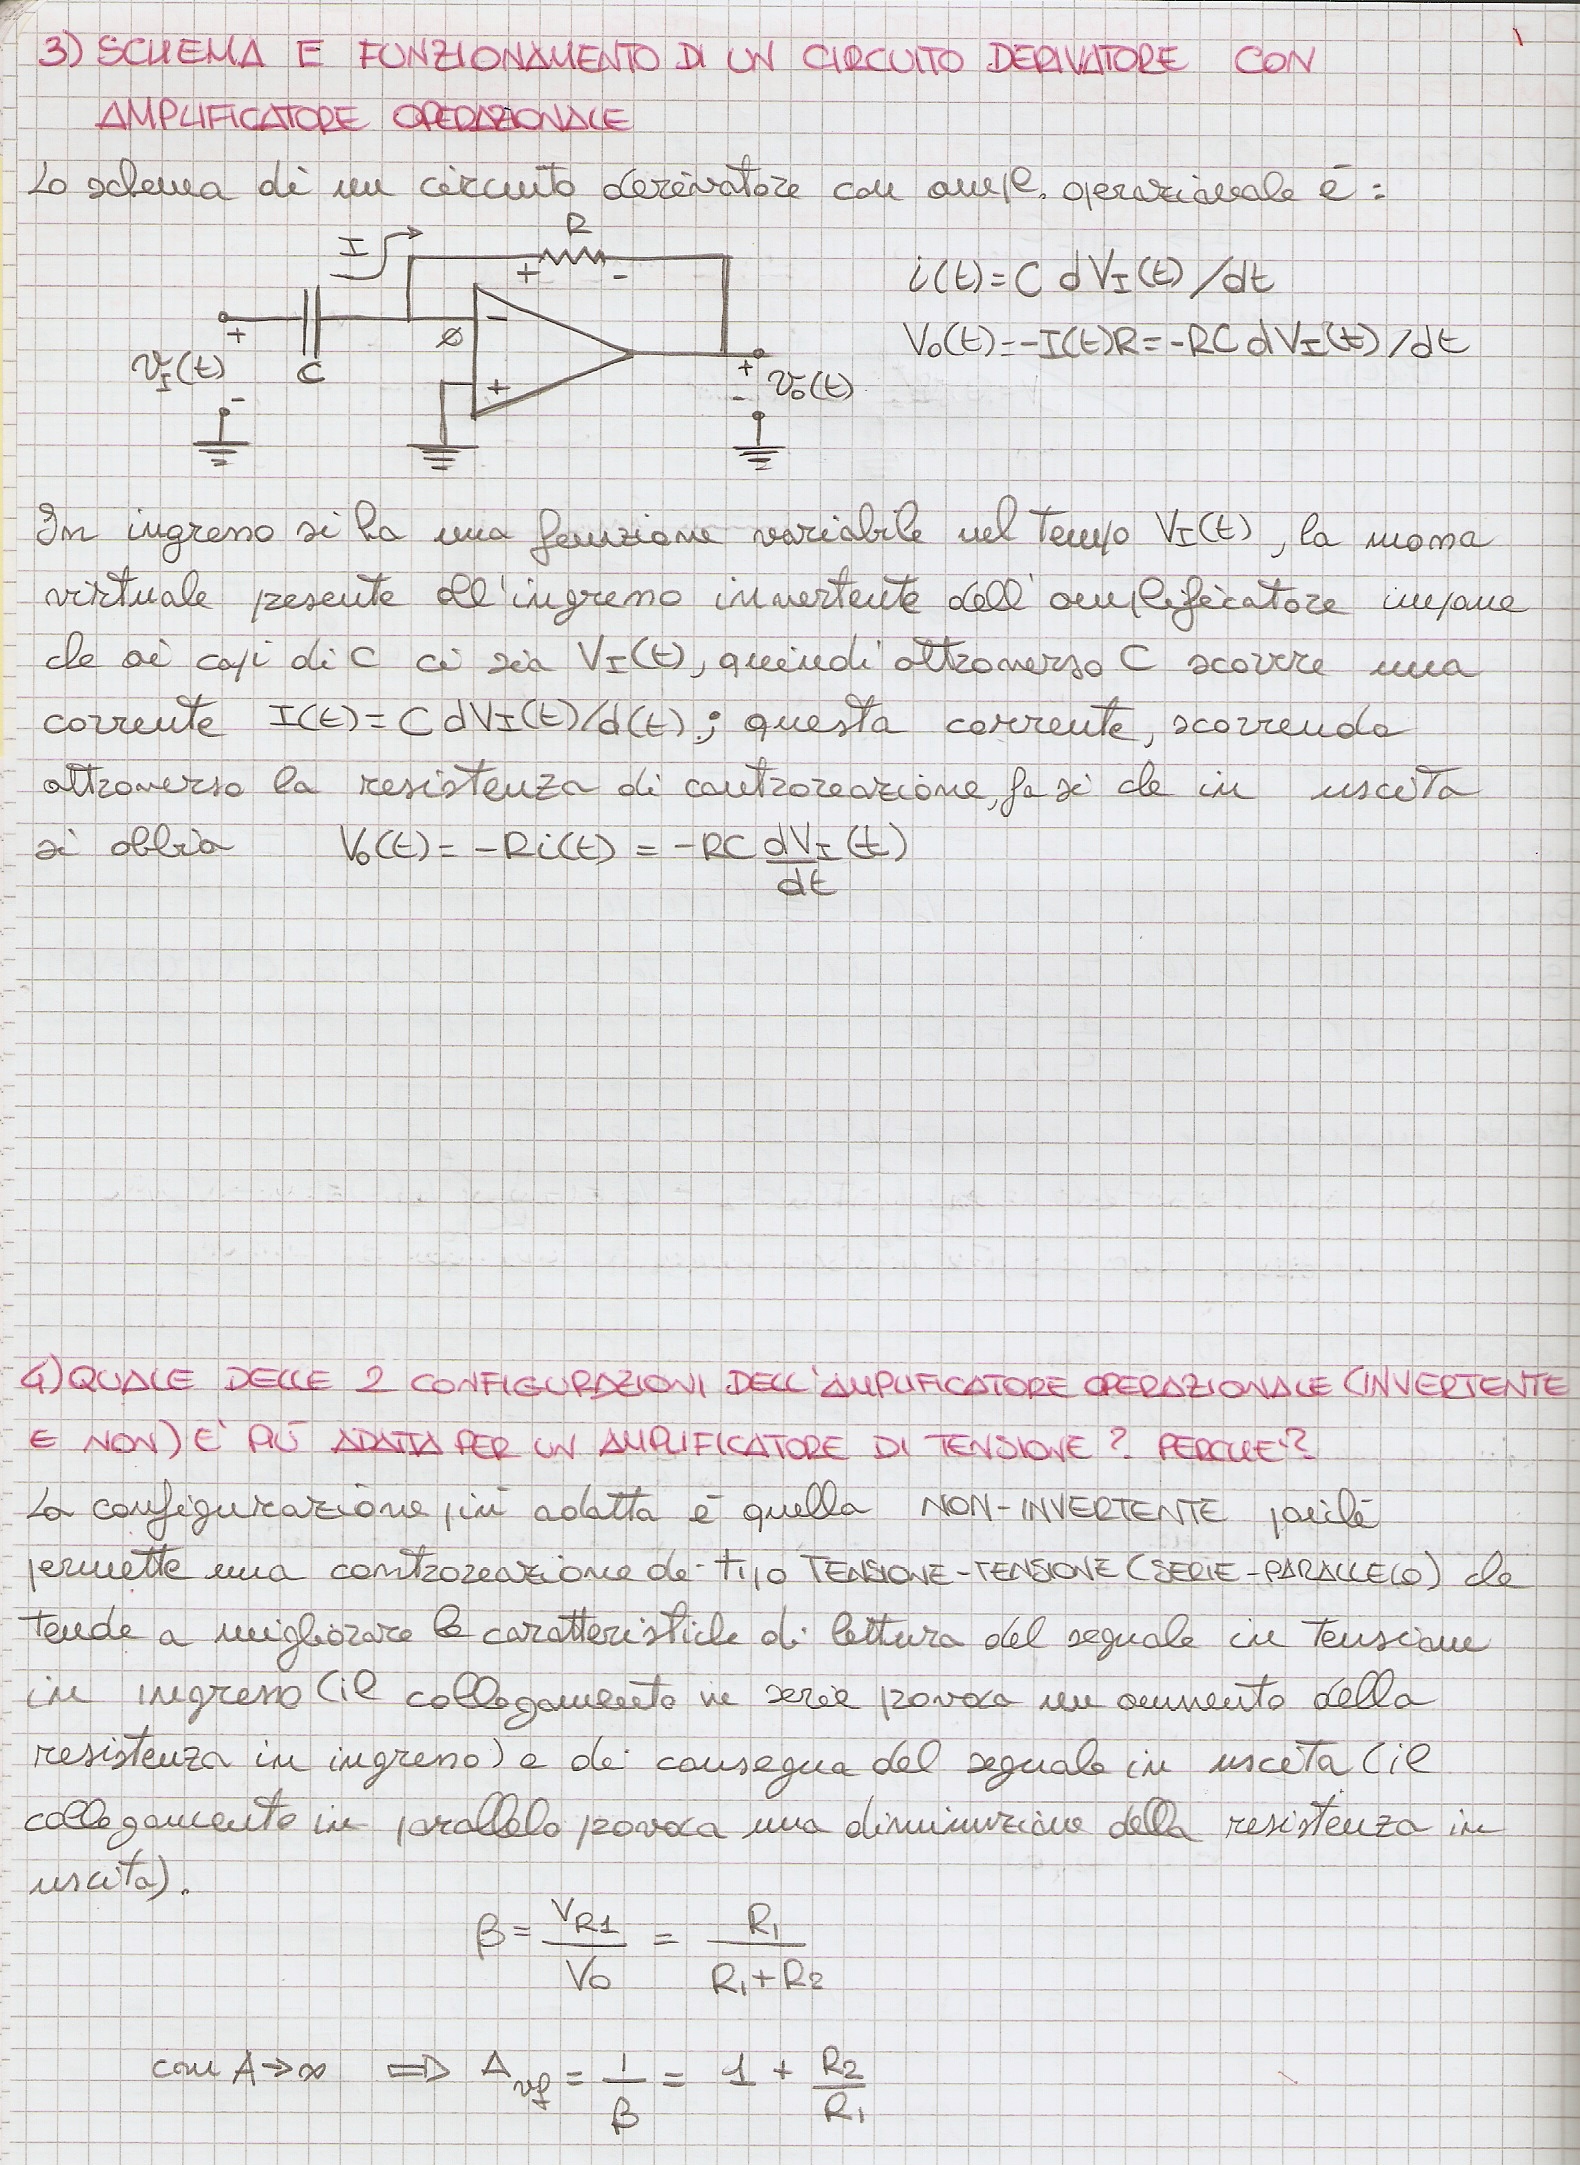 3) SCHEMA E FUNZIONAMENTO DI UN CIRCUITO DERIVATORE CON
AMPLIFICATORE OPERAZIONALE
Lo schema di un circuito derivatore con ampl. operazionale è:
R
I
+ -
i(t)=C dVI(t)/dt
- 
+ ø
Vo(t)=-I(t)R=-RC dVI(t)/dt
vI(t) C + + vo(t)
- -
In ingresso si ha una funzione variabile nel tempo VI(t), la massa
virtuale presente all'ingresso invertente dell'amplificatore impone
che ai capi di C ci sia VI(t), quindi attraverso C scorre una
corrente I(t)=C dVI(t)/d(t); questa corrente, scorrendo
attraverso la resistenza di controreazione, fa si che in uscita
si abbia Vo(t)= -Ri(t) = -RC dVI(t)
dt
4) QUALE DELLE 2 CONFIGURAZIONI DELL'AMPLIFICATORE OPERAZIONALE (INVERTENTE
E NON) E' PIÙ ADATTA PER UN AMPLIFICATORE DI TENSIONE? PERCHE'?
La configurazione più adatta è quella NON-INVERTENTE poichè
permette una controreazione di tipo TENSIONE-TENSIONE (SERIE-PARALLELO) che
tende a migliorare le caratteristiche di lettura del segnale in tensione
in ingresso (il collegamento in serie provoca un aumento della
resistenza in ingresso) e di consegna del segnale in uscita (il
collegamento in parallelo provoca una diminuzione della resistenza in
uscita).
β = VR1 / Vo = R1 / R1+R2
con A→∞ ⇒ Avf = 1/β = 1 + R2/R1